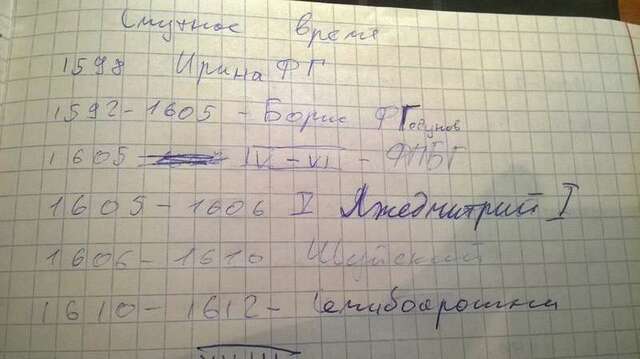 Смутное время
1598 Ирина ФГ
1592-1605 - Борис ФГодунов
1605 IV-VI - ФПБГ
1605-1606 V Лжедмитрий I
1606-1610 Шуйский
1610-1612- Семибоярошни